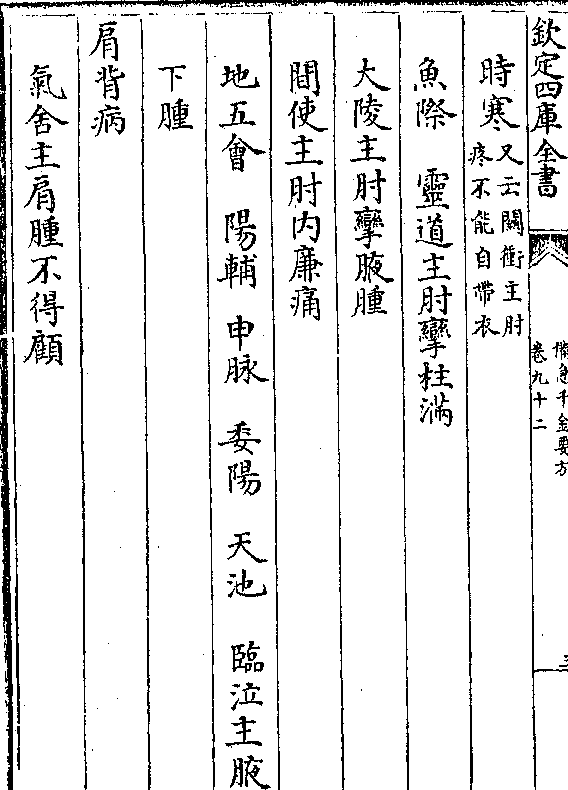 欽定四庫全書
備急千金要方
卷九十二
時寒又云關衝主肘疼不能自帶衣
魚際 靈道主肘攣柱滿
大陵主肘攣腋腫
間使主肘内廉痛
地五會 陽輔 申脉 委陽 天池 臨泣主腋
下腫
肩背病
氣舍主肩腫不得顧